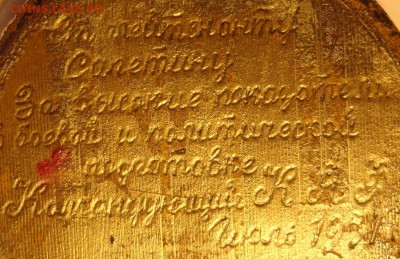 Ст лейтенанту
Сапетину
За высокие показатели
в боевой и политической
подготовке
Командующий К А Ф
Июль 195